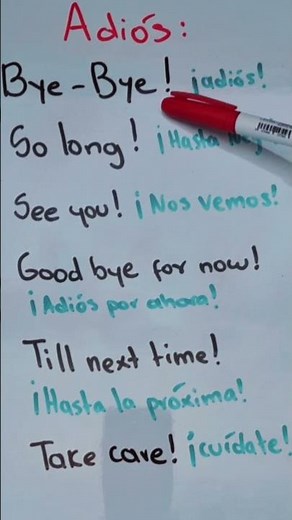 Adiós:
Bye-Bye! ¡adiós!
So long! ¡Hasta
See you! ¡Nos vemos!
Good bye for now!
¡Adiós por ahora!
Till next time!
¡Hasta la próxima!
Take care! ¡cuídate!